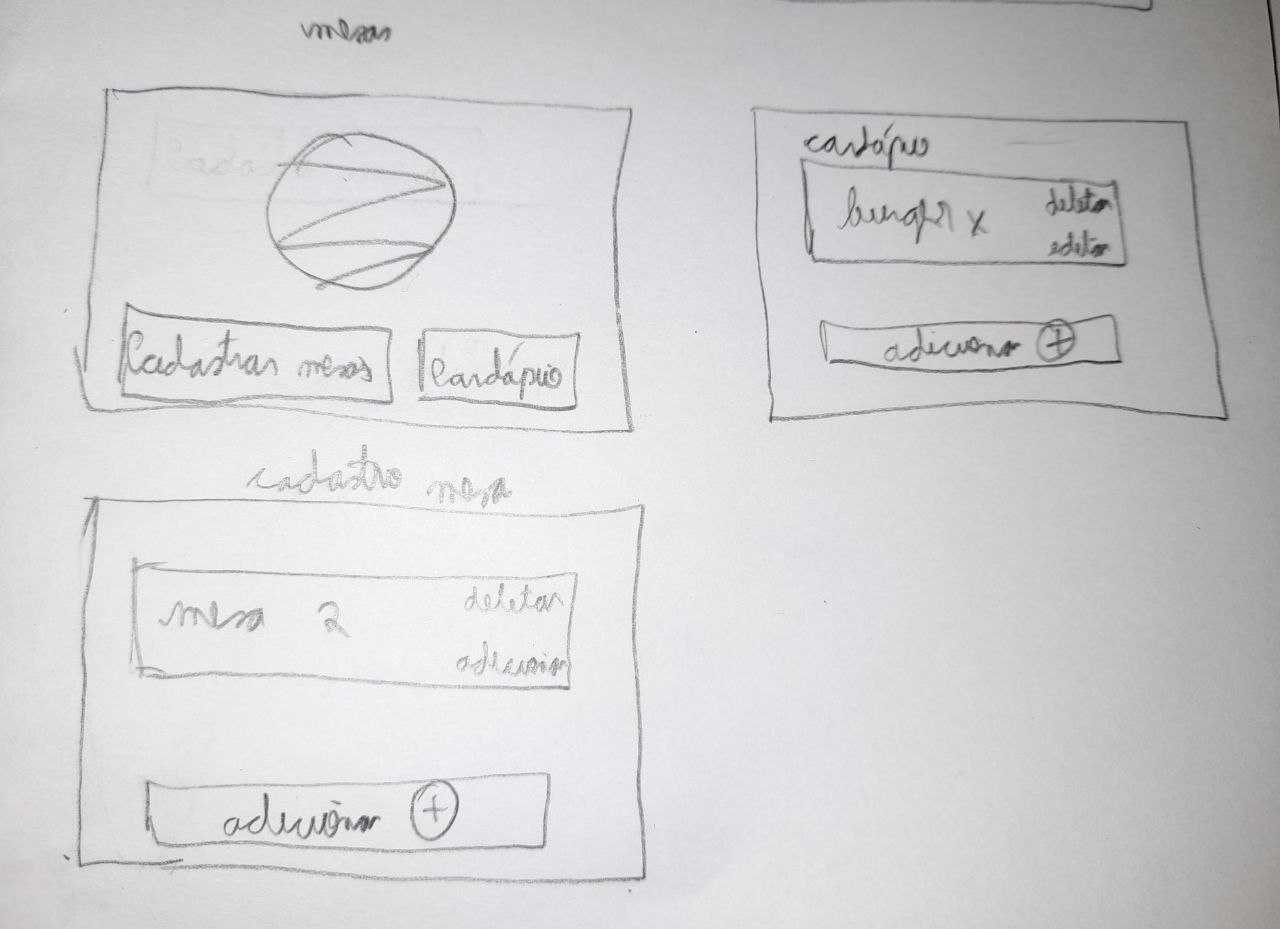 mesas
Cadastrar mesas
Cardápio
cardápio
burger x
deletar
editar
adicionar +
cadastro mesa
mesa 2
deletar
adicionar
adicionar +